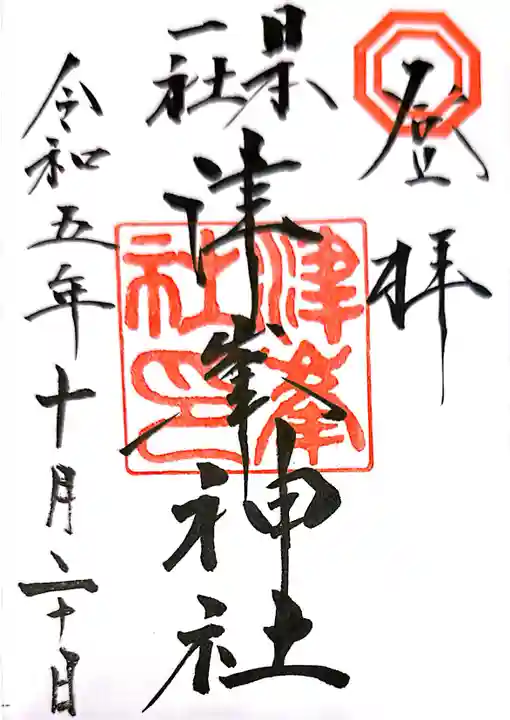 登拝
県一社
津峯神社
津峯社印
令和五年十月二十日